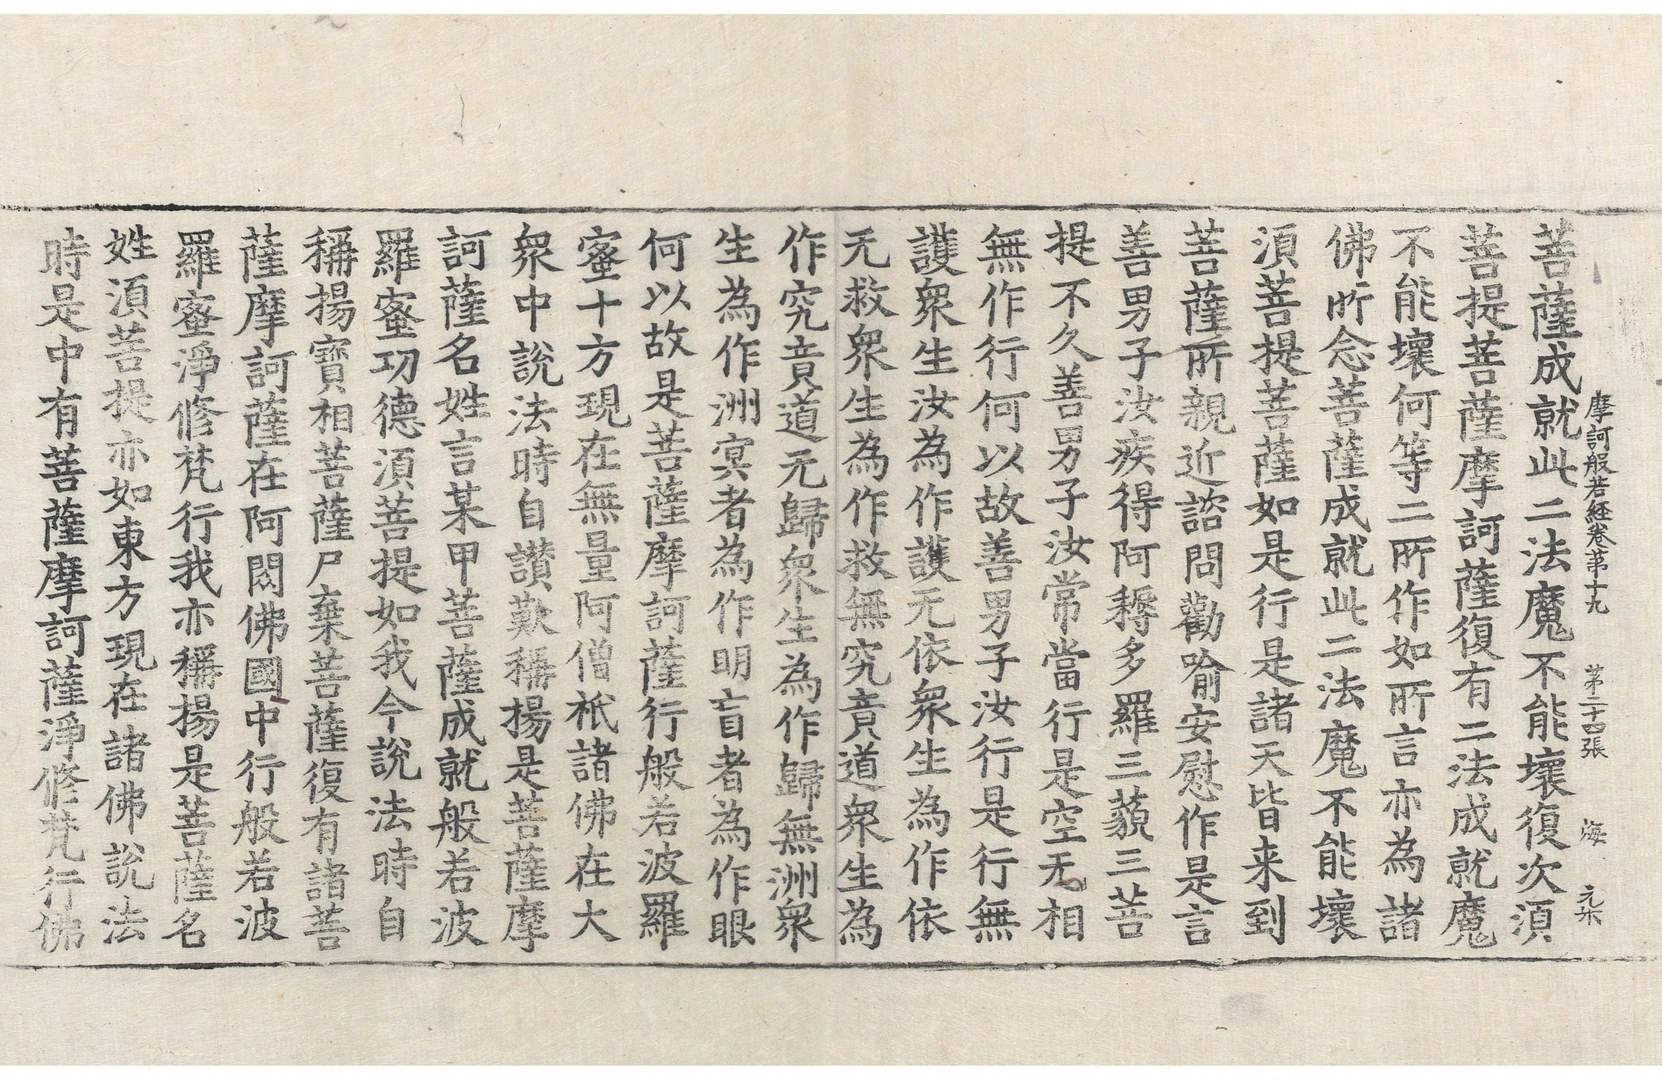 摩訶般若経卷苐十九 第二十四張 海
菩薩成就此二法魔不能壞復次湏
菩提菩薩摩訶薩復有二法成就魔
不能壞何等二所作如所言亦為諸
佛所念菩薩成就此二法魔不能壞
湏菩提菩薩如是行是諸天皆来到
菩薩所親近諮問勸喻安慰作是言
善男子汝疾得阿耨多羅三藐三菩
提不久善男子汝常當行是空无相
無作行何以故善男子汝行是行無
護衆生汝為作護无依衆生為作依
无救衆生為作救無究竟道衆生為
作究竟道无歸衆生為作歸無洲衆
生為作洲冥者為作明盲者為作眼
何以故是菩薩摩訶薩行般若波羅
蜜十方現在無量阿僧祇諸佛在大
衆中說法時自讃歎稱揚是菩薩摩
訶薩名姓言某甲菩薩成就般若波
羅蜜功德湏菩提如我今說法時自
稱揚寶相菩薩尸棄菩薩復有諸菩
薩摩訶薩在阿閦佛國中行般若波
羅蜜淨修梵行我亦稱揚是菩薩名
姓湏菩提亦如東方現在諸佛說法
時是中有菩薩摩訶薩淨修梵行佛